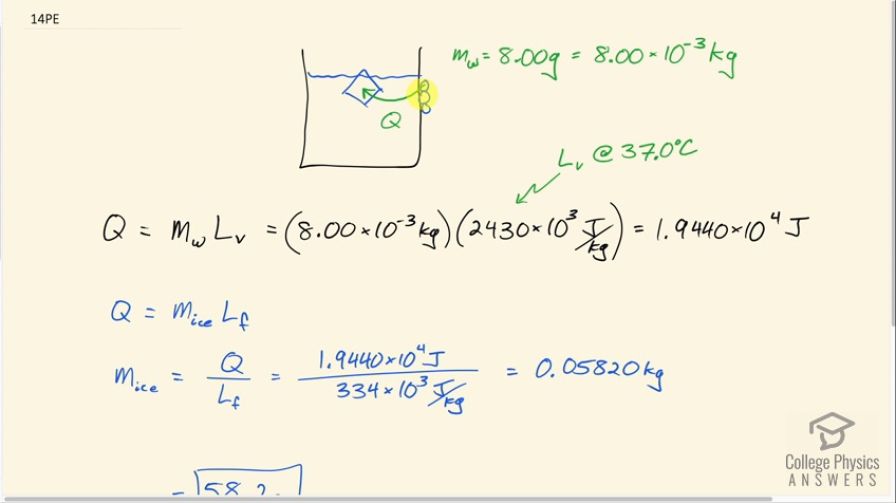 14PE
m_w = 8.00g = 8.00 × 10⁻³ kg
Q
L_v @ 37.0°C
Q = m_w L_v = (8.00 × 10⁻³ kg)(2430 × 10³ J/kg) = 1.9440 × 10⁴ J
Q = m_ice L_f
m_ice = Q/L_f = 1.9440 × 10⁴ J / 334 × 10³ J/kg = 0.05820 kg
= 58.2
College Physics
ANSWERS